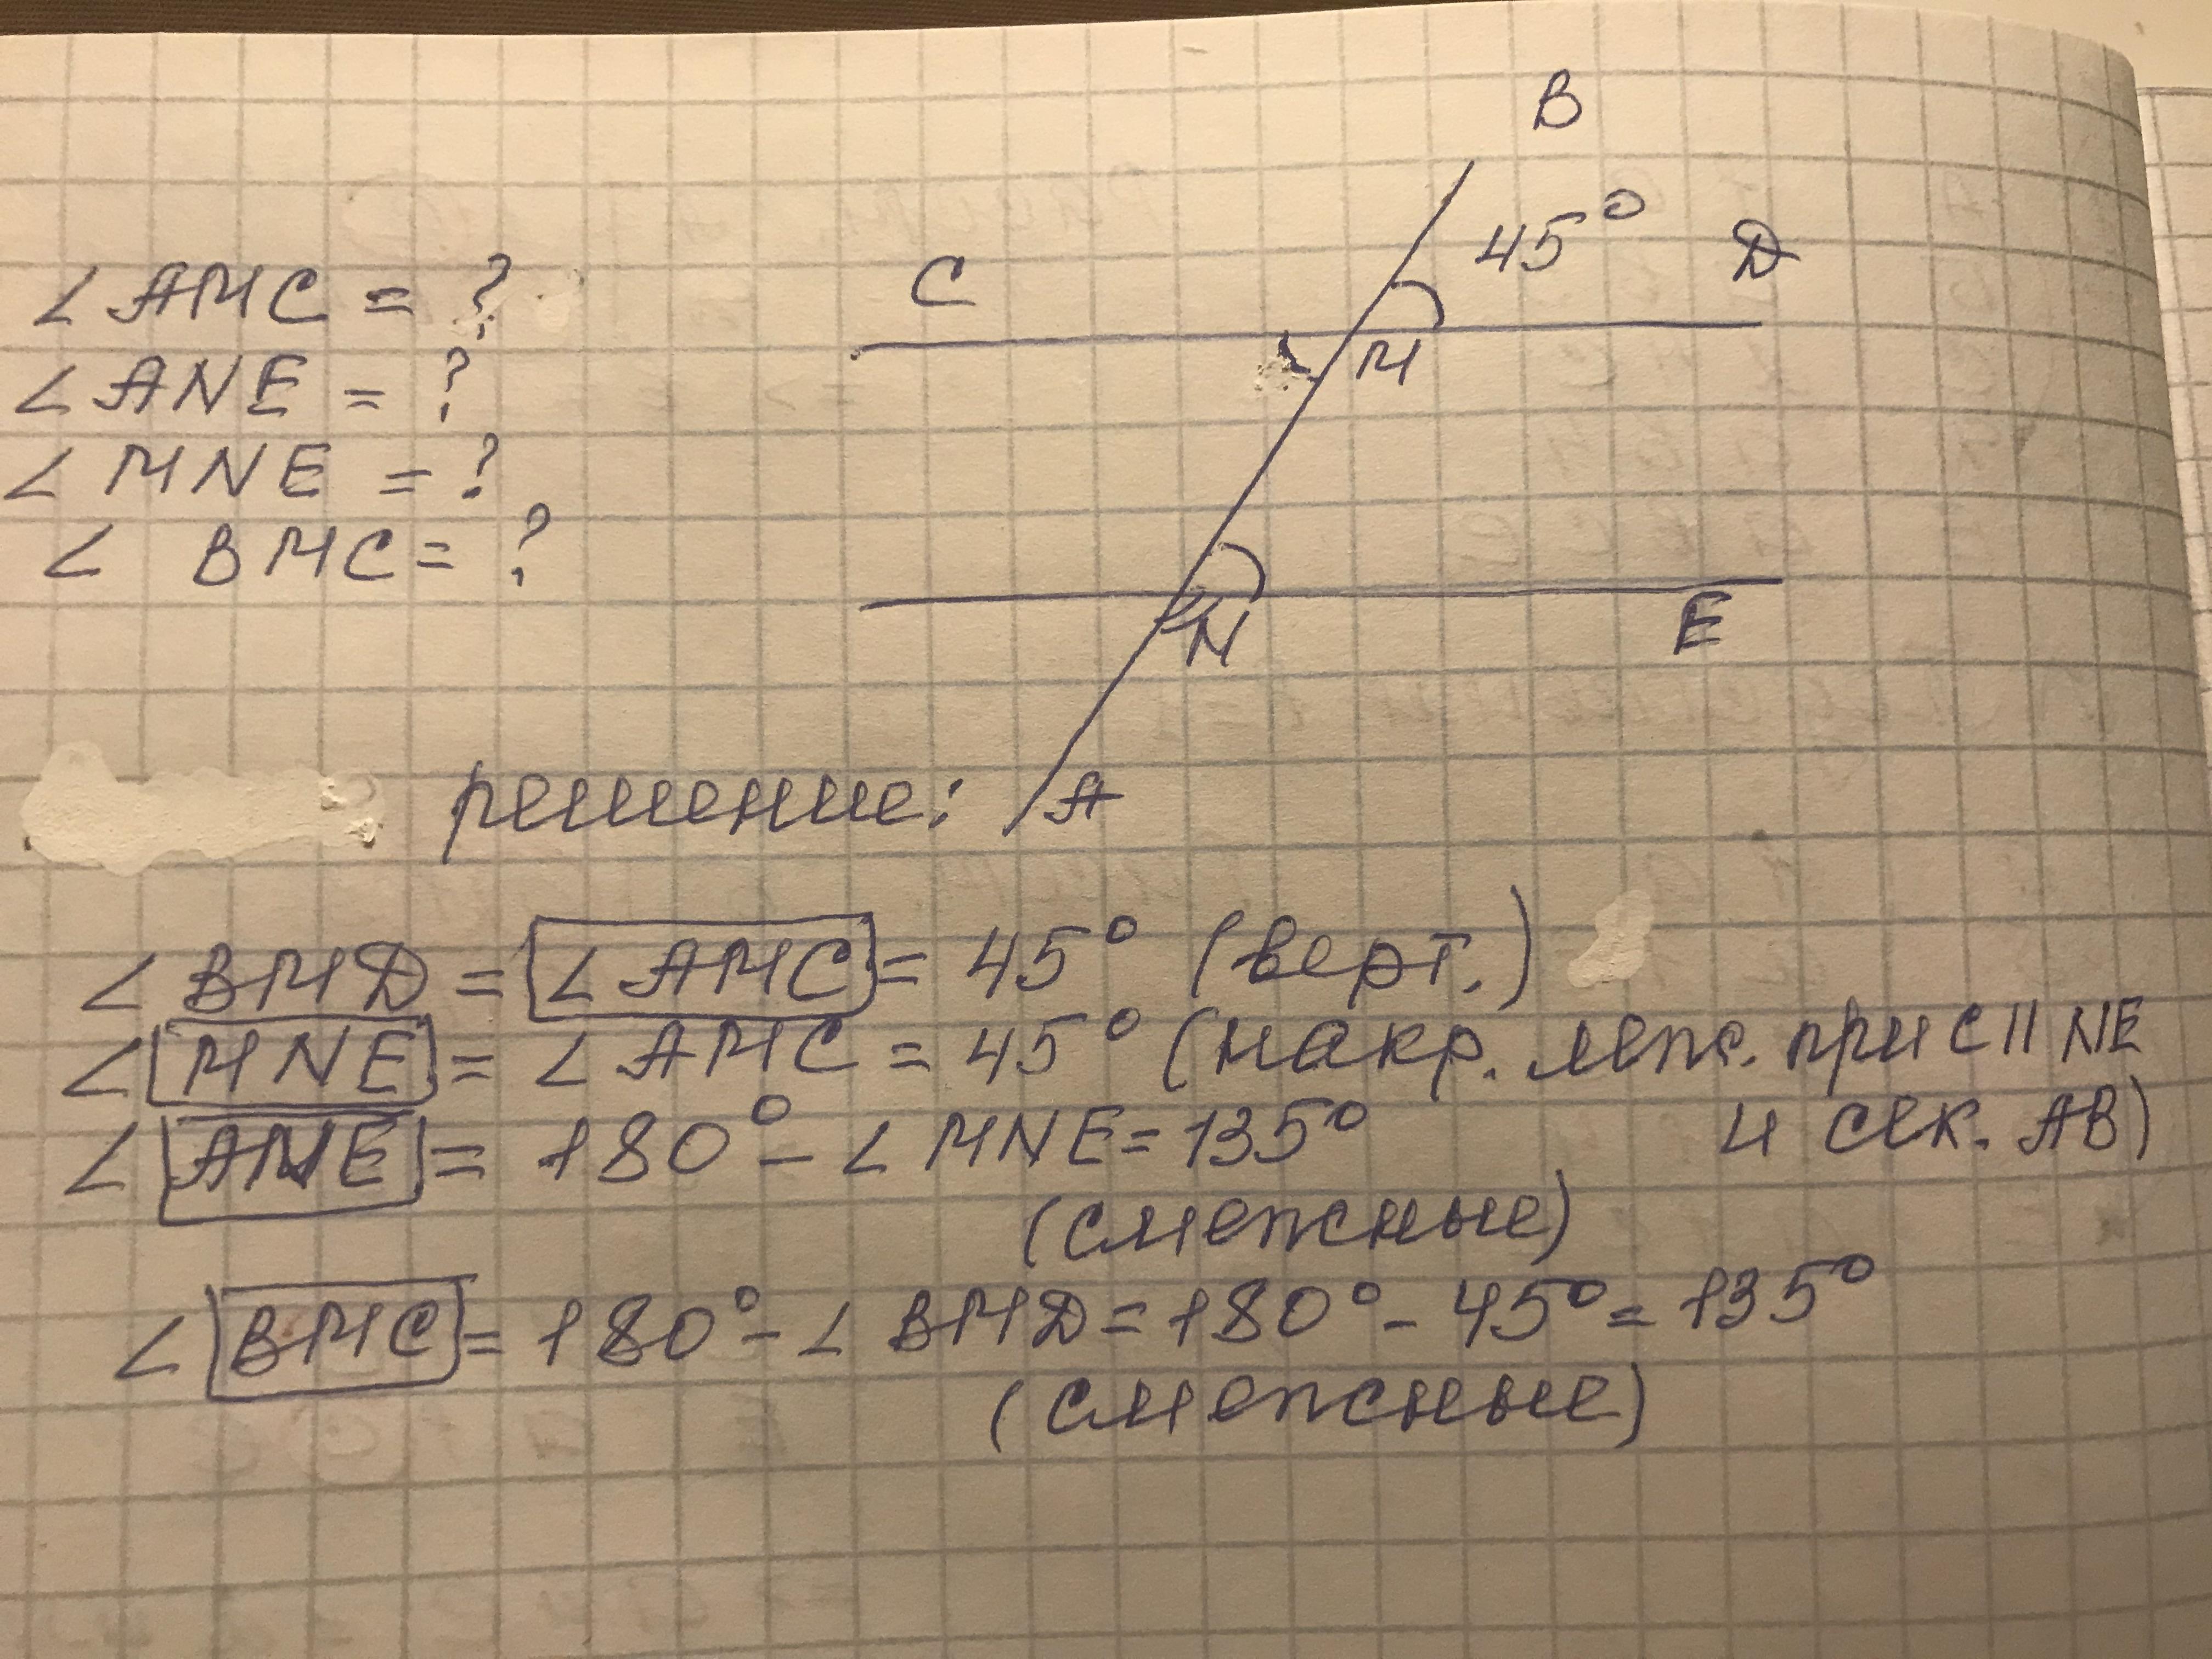 B
45°
D
C
∠AMC = ?
∠ANE = ?
∠MNE = ?
∠ BMC = ?
M
N
E
A
решение:
∠BMD = ∠AMC = 45° (верт.)
∠MNE = ∠AMC = 45° (накр. леж. при C || NE
и сек. AB)
∠ANE = 180° - ∠MNE = 135°
(смежные)
∠BMC = 180° - ∠BMD = 180° - 45° = 135°
(смежные)